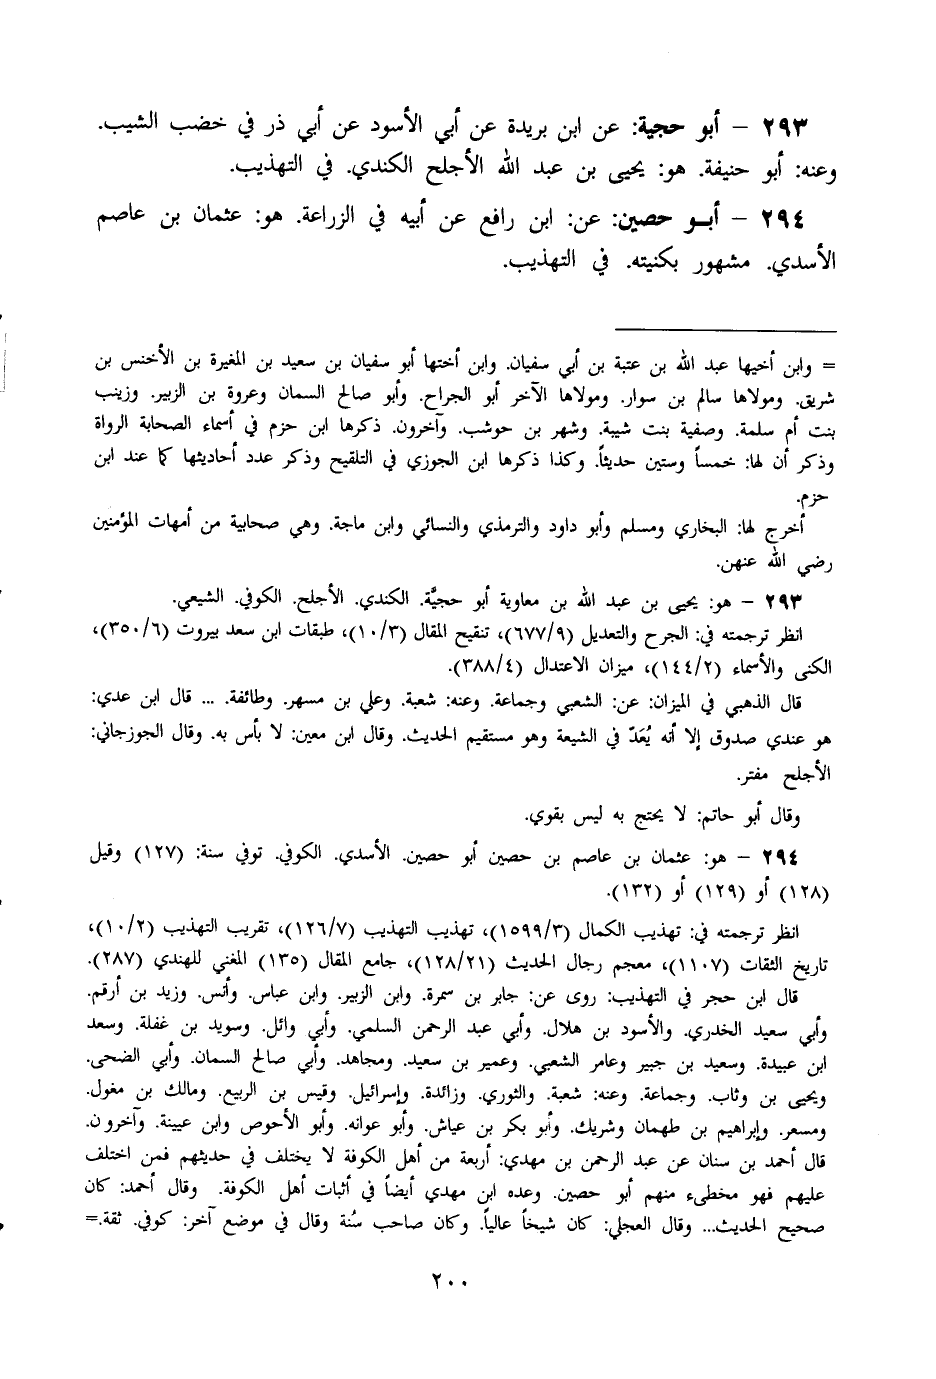 ٢٩٣ – أبو حجية: عن ابن بريدة عن أبي الأسود عن أبي ذر في خضب الشيب.
وعنه: أبو حنيفة. هو: يحيى بن عبد الله الأجلح الكندي. في التهذيب.
٢٩٤ – أبــو حصين: عن: ابن رافع عن أبيه في الزراعة. هو: عثمان بن عاصم
الأسدي. مشهور بكنيته. في التهذيب.
= وابن أخيها عبد الله بن عتبة بن أبي سفيان. وابن أختها أبو سفيان بن سعيد بن المغيرة بن الأخنس بن
شريق. ومولاها سالم بن سوار. ومولاها الآخر أبو الجراح. وأبو صالح السمان وعروة بن الزبير. وزينب
بنت أم سلمة. وصفية بنت شيبة. وشهر بن حوشب. وآخرون. ذكرها ابن حزم في أسماء الصحابة الرواة
وذكر أن لها: خمساً وستين حديثاً. وكذا ذكرها ابن الجوزي في التلقيح وذكر عدد أحاديثها كما عند ابن
حزم.
أخرج لها: البخاري ومسلم وأبو داود والترمذي والنسائي وابن ماجة. وهي صحابية من أمهات المؤمنين
رضي الله عنهن.
٢٩٣ – هو: يحيى بن عبد الله بن معاوية أبو حجيَّة. الكندي. الأجلح. الكوفي. الشيعي.
انظر ترجمته في: الجرح والتعديل (٦٧٧/٩)، تنقيح المقال (١٠/٣)، طبقات ابن سعد بيروت (٣٥٠/٦)،
الكنى والأسماء (١٤٤/٢)، ميزان الاعتدال (٣٨٨/٤).
قال الذهبي في الميزان: عن: الشعبي وجماعة. وعنه: شعبة. وعلي بن مسهر. وطائفة. ... قال ابن عدي:
هو عندي صدوق إلا أنه يُعَدّ في الشيعة وهو مستقيم الحديث. وقال ابن معين: لا بأس به. وقال الجوزجاني:
الأجلح مفتر.
وقال أبو حاتم: لا يحتج به ليس بقوي.
٢٩٤ – هو: عثمان بن عاصم بن حصين أبو حصين. الأسدي. الكوفي. توفي سنة: (١٢٧) وقيل
(١٢٨) أو (١٢٩) أو (١٣٢).
انظر ترجمته في: تهذيب الكمال (١٥٩٩/٣)، تهذيب التهذيب (١٢٦/٧)، تقريب التهذيب (١٠/٢)،
تاريخ الثقات (١١٠٧)، معجم رجال الحديث (١٢٨/٢١)، جامع المقال (١٣٥) المغني للهندي (٢٨٧).
قال ابن حجر في التهذيب: روى عن: جابر بن سمرة. وابن الزبير. وابن عباس. وأنس. وزيد بن أرقم.
وأبي سعيد الخدري. والأسود بن هلال. وأبي عبد الرحمن السلمي. وأبي وائل. وسويد بن غفلة. وسعد
ابن عبيدة. وسعيد بن جبير وعامر الشعبي. وعمير بن سعيد. ومجاهد. وأبي صالح السمان. وأبي الضحى.
ويحيى بن وثاب. وجماعة. وعنه: شعبة. والثوري. وزائدة. وإسرائيل. وقيس بن الربيع. ومالك بن مغول.
ومسعر. وإبراهيم بن طهمان وشريك. وأبو بكر بن عياش. وأبو عوانه. وأبو الأحوص وابن عيينة. وآخرون.
قال أحمد بن سنان عن عبد الرحمن بن مهدي: أربعة من أهل الكوفة لا يختلف في حديثهم فمن اختلف
عليهم فهو مخطىء منهم أبو حصين. وعده ابن مهدي أيضاً في أثبات أهل الكوفة. وقال أحمد: كان
صحيح الحديث... وقال العجلي: كان شيخاً عالياً. وكان صاحب سُنة وقال في موضع آخر: كوفي. ثقة.=
٢٠٠